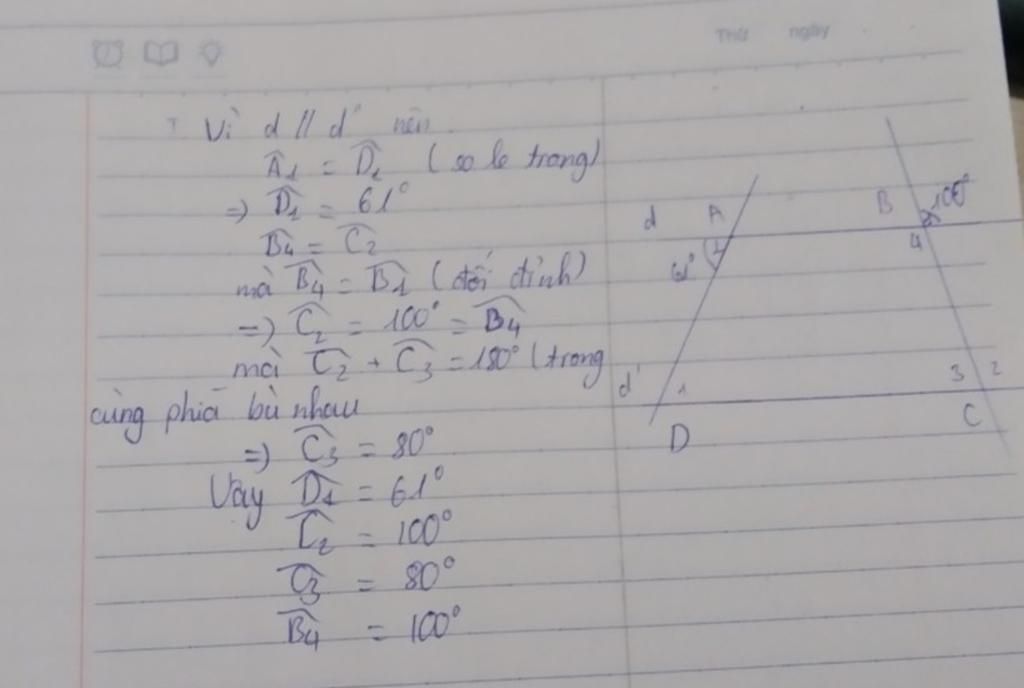 Thứ ngày
Vì d // d' nên
Â1 = D̂1 (so le trong)
=) D̂1 = 61°
B̂4 = Ĉ2
mà B̂4 = B̂1 (đối đỉnh)
=) Ĉ2 = 100° = B̂4
mà Ĉ2 + Ĉ3 = 180° (trong
cùng phía bù nhau
=) Ĉ3 = 80°
Vậy D̂1 = 61°
Ĉ2 = 100°
Ĉ3 = 80°
B̂4 = 100°
d A B 100°
1 4
61°
d' 1 3 2
D C